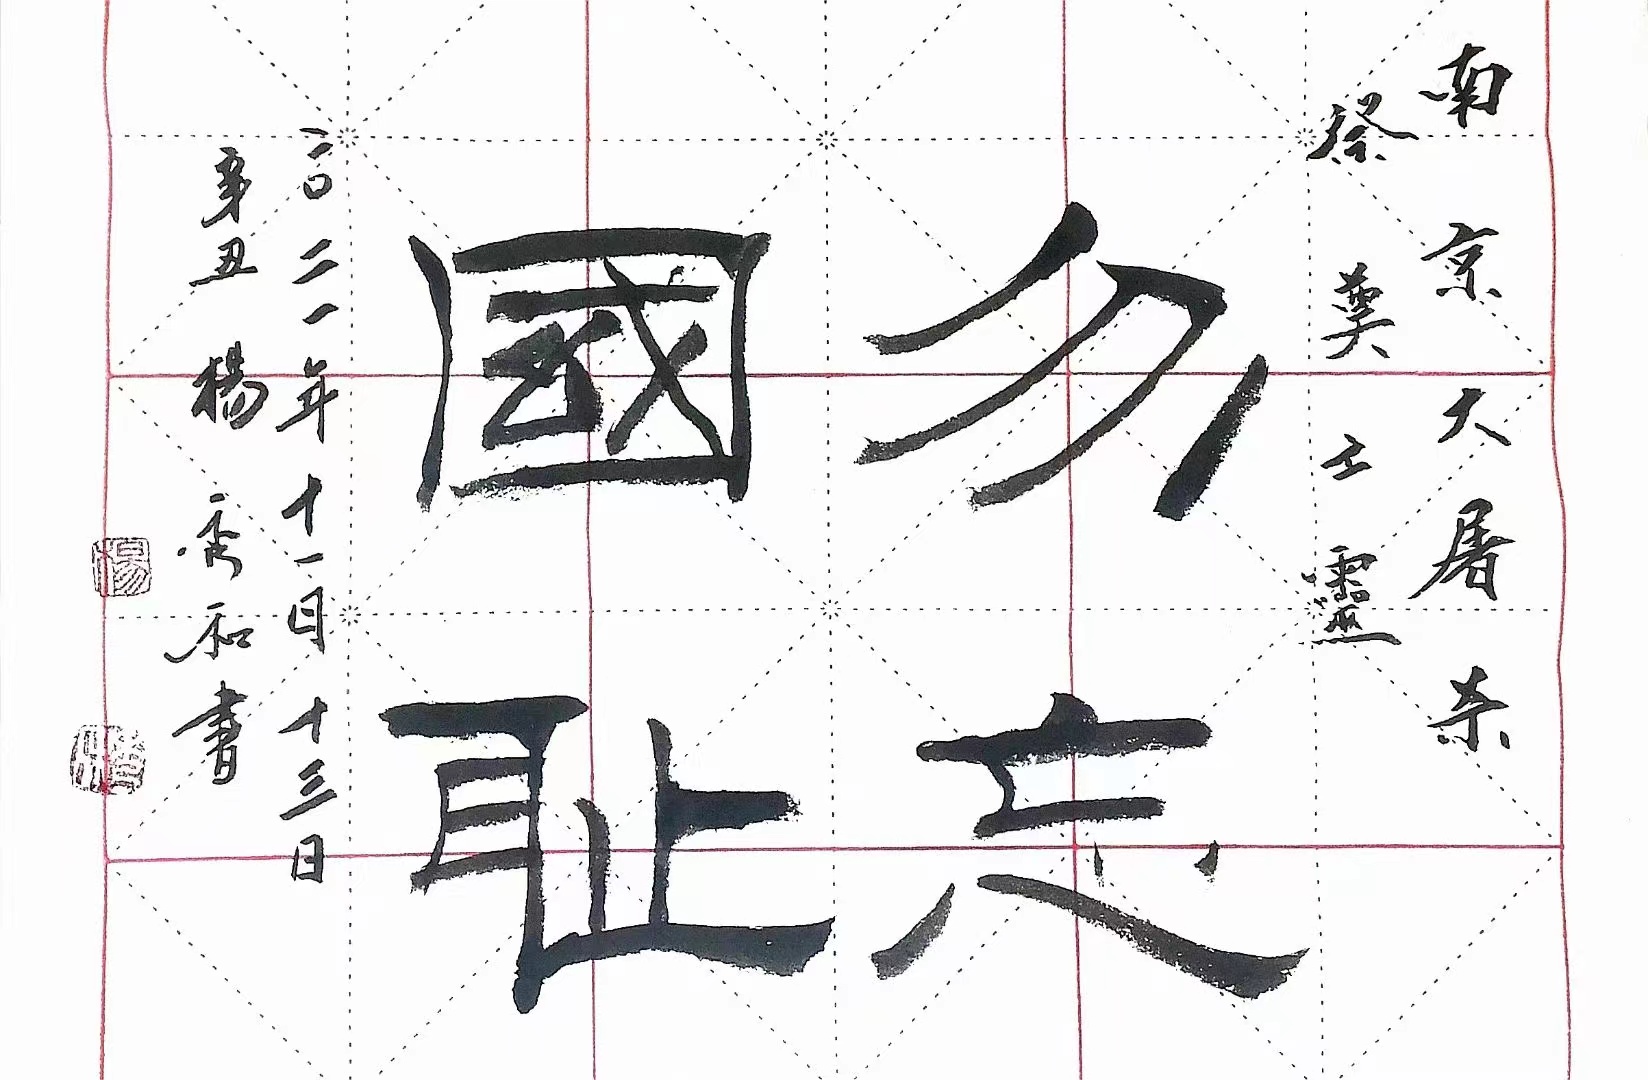 南京大屠杀
祭奠亡靈
勿忘
國耻
二〇二一年十一月十三日
辛丑楊秀和書
楊